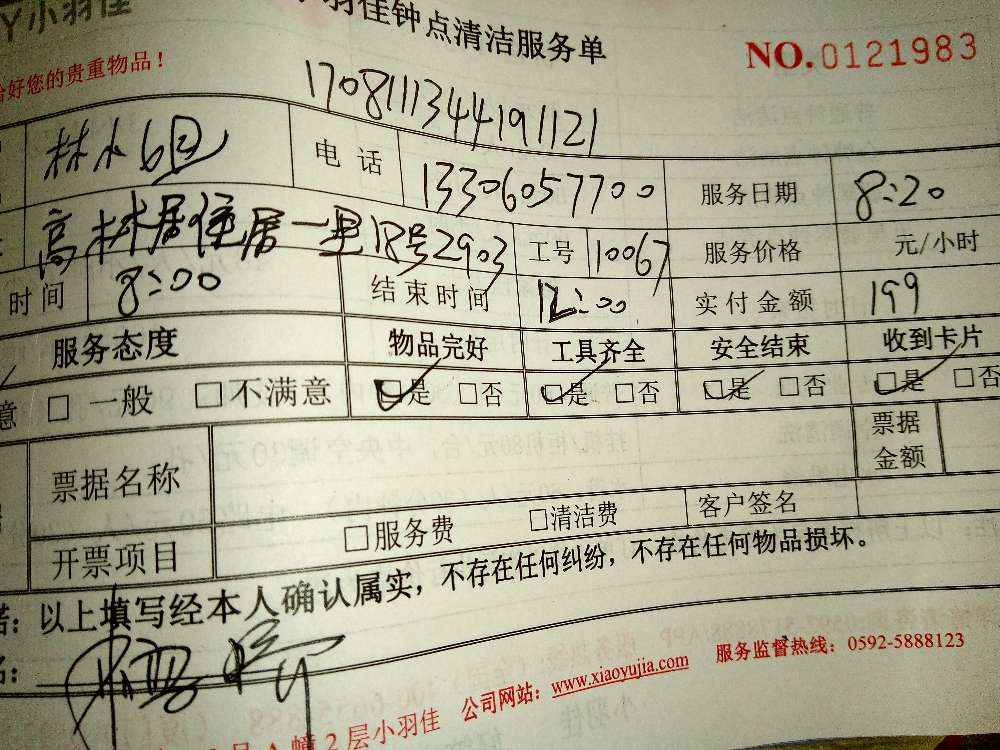 小羽佳
小羽佳钟点清洁服务单
NO.0121983
好您的贵重物品！
1708111344191121
林小姐 电话 13306057700 服务日期 8:20
高林居住居一里18号2903 工号 10067 服务价格 元/小时
时间 8:00 结束时间 12:00 实付金额 199
服务态度 物品完好 工具齐全 安全结束 收到卡片
意 □一般 □不满意 □是 □否 □是 □否 □是 □否 □是 □否
票据名称 票据金额
开票项目 □服务费 □清洁费 客户签名
诺：以上填写经本人确认属实，不存在任何纠纷，不存在任何物品损坏。
名：
幢2层小羽佳 公司网站：www.xiaoyujia.com 服务监督热线：0592-5888123